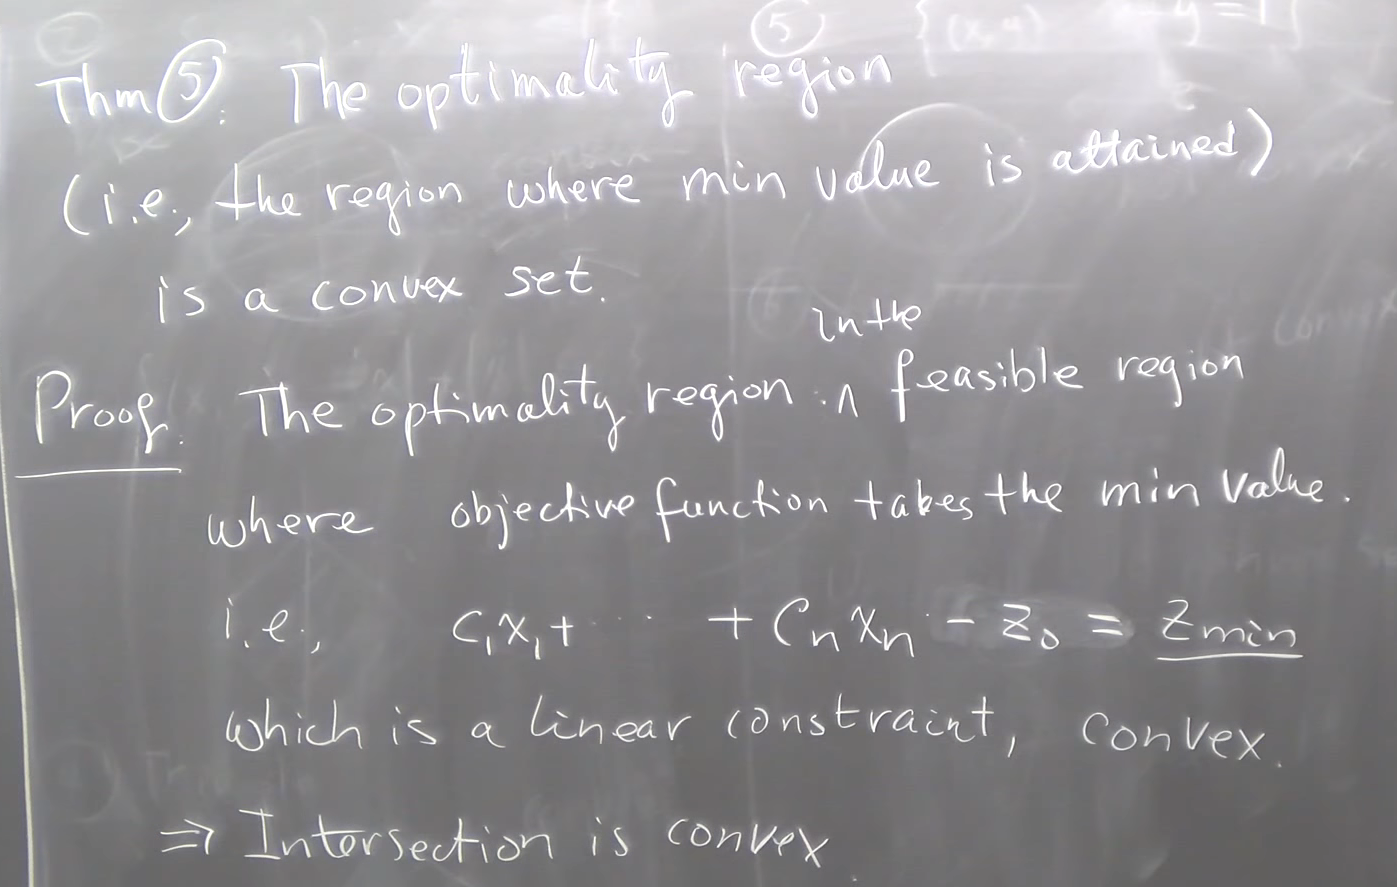 Thm ⑤: The optimality region
(i.e., the region where min value is attained)
is a convex set.
in the
Proof. The optimality region : ∧ feasible region
where objective function takes the min value.
i.e., c₁x₁ + ··· + cₙxₙ - z₀ = zmin
which is a linear constraint, convex.
⇒ Intersection is convex